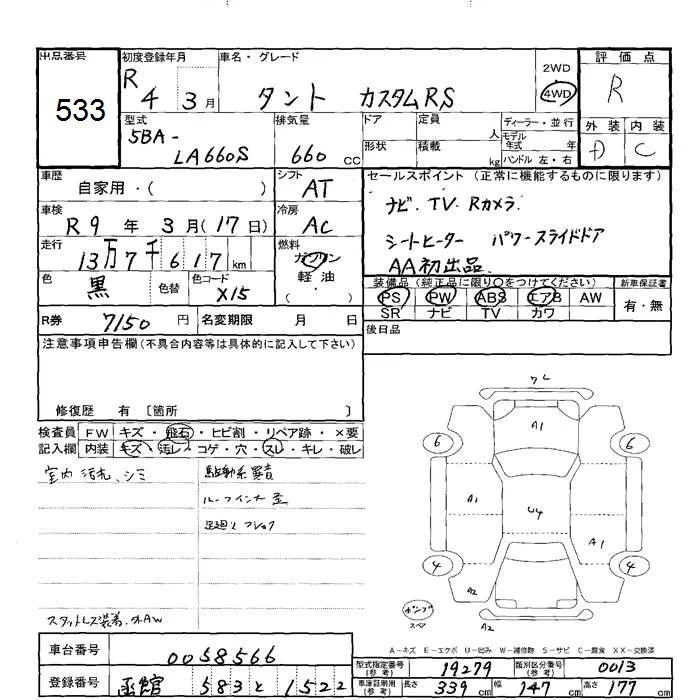 出品番号 初度登録年月 車名・グレード 評価点
533
R 4 3月
タント カスタムRS
2WD
4WD
R
型式 排気量 ドア 定員 人 ディーラー・並行
外装 内装
5BA-
LA660S 660 cc
形状 積載 kg モデル年式 年
ハンドル 左・右
D C
車歴 自家用・( )
シフト AT
セールスポイント (正常に機能するものに限ります)
車検 R9年 3月(17日)
冷房 AC
ナビ. TV. Rカメラ.
走行 13万7千617km
燃料 ガソリン
軽油・
( )
シートヒーター パワースライドドア
AA初出品.
色 黒 色替 色コード X15
装備品 (純正品に限り○をつけてください) 新車保証書
PS PW ABS エアB AW 有・無
SR ナビ TV カワ
R券 7150円 名変期限 月 日
後日品
注意事項申告欄(不具合内容等は具体的に記入して下さい)
修復歴 有 〔箇所 〕
検査員 FW キズ・飛石・ヒビ割・リペア跡・×要
記入欄 内装 キズ・汚れ・コゲ・穴・スレ・キレ・破レ
室内 汚れ、シミ
駆動系異音
ルーフインナ歪
足廻り
スタットレス装着.
ワレ
A1
6 6
A1 U4 A1
4 4
A2
A2
A-キズ E-エクボ U-凹み W-補修跡 S-サビ C-腐食 XX-交換済
車台番号 0058566
型式指定番号(参考) 19279 類別区分番号(参考) 0013
登録番号 函館 583と1522
車庫証明用(参考) 長さ 339cm 幅 147cm 高さ 177cm